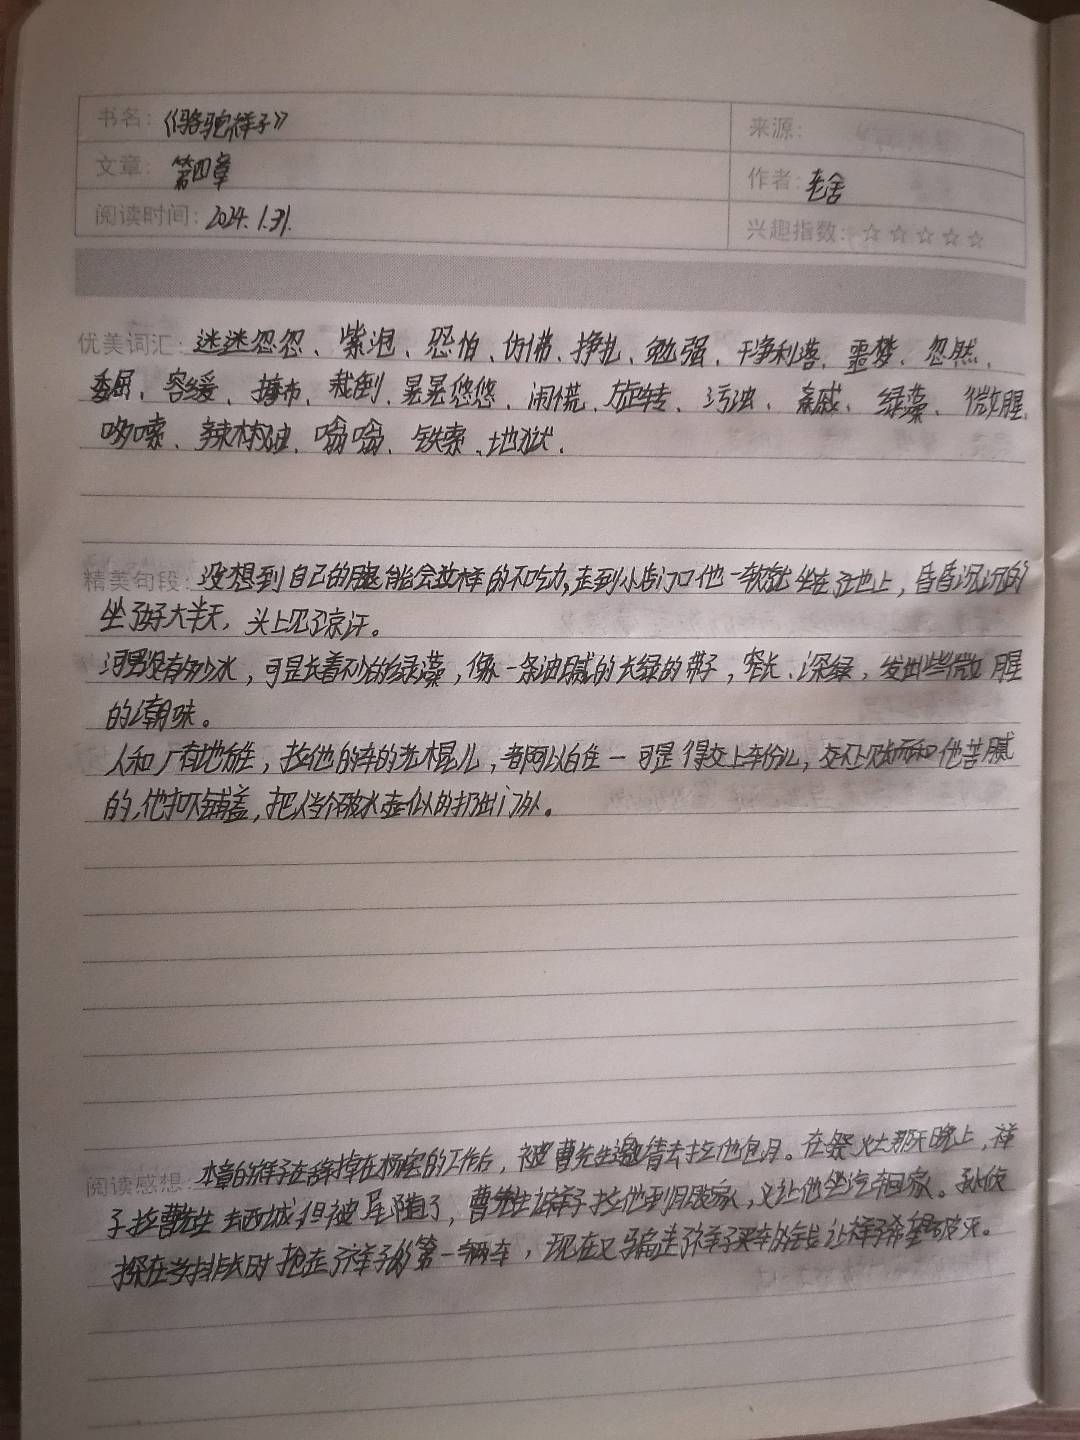 书名：《骆驼祥子》 来源：
文章：第四章 作者：老舍
阅读时间：2024.1.31. 兴趣指数：☆☆☆☆☆
优美词汇：迷迷忽忽、紫泡、恐怕、仿佛、挣扎、勉强、干净利落、噩梦、忽然、
委屈、容缓、擤布、栽倒、晃晃悠悠、闹慌、旋转、污浊、亲戚、绿藻、微腥、
哆嗦、辣椒油、嗡嗡、铁索、地狱、
精美句段：没想到自己的腿能会这样的不吃力，走到小店门口他一软就坐在了地上，昏昏沉沉的
坐了好大半天，头上见了凉汗。
河里没有多少水，可是长着不少的绿藻，像一条油腻的长绿的带子，窄长、深绿，发出些微腥
的潮味。
人和厂有地方住，拉他的车的光棍儿，都可以白住一可是得交上车份儿，交不上账而和他苦腻
的，他扣下铺盖，把人当个破水壶似的扔出门外。
阅读感想：本章的祥子在辞掉在杨宅的工作后，被曹先生邀请去拉他包月。在祭灶那天晚上，祥
子拉曹先生去西城但被尾随了，曹先生让祥子拉他到左家，又让他坐汽车回家。孙侦
探在当排长时抢走了祥子的第一辆车，现在又骗走了祥子买车的钱让祥子希望破灭。